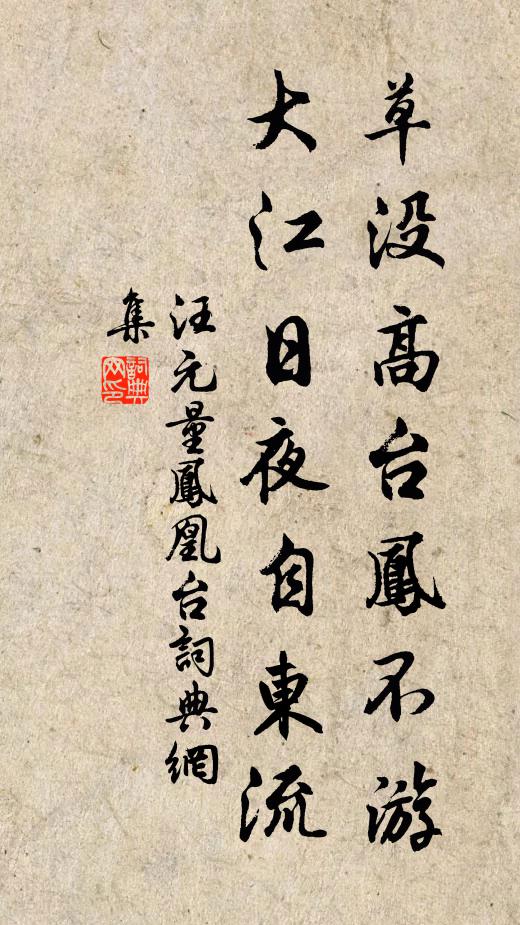 草没高台鳳不游
大江日夜自東流
汪元量鳳凰台詞典網
集
詞典
网印